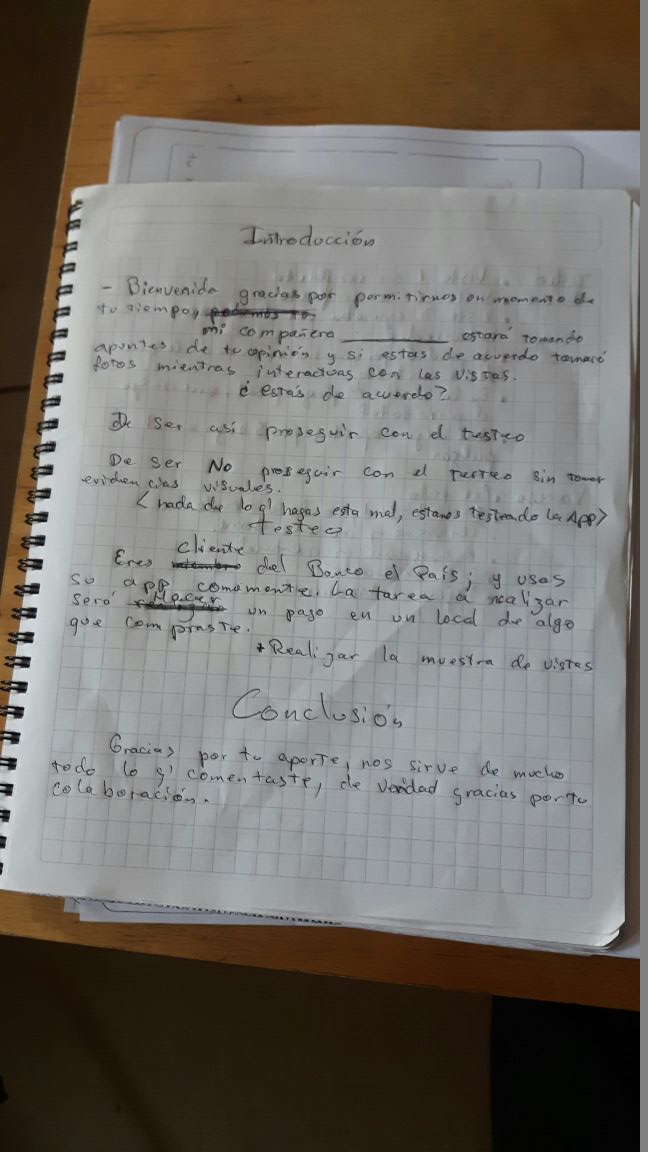 Introducción
- Bienvenida gracias por permitirnos un momento de
tu tiempo, podemos to
mi compañera __________ estará tomando
apuntes de tu opinión y si estas de acuerdo tomaré
fotos mientras interactuas con las vistas.
¿ estás de acuerdo?
De ser así proseguir con el testeo
De ser No proseguir con el testeo sin tomar
evidencias visuales.
< nada de lo q' hagas esta mal, estamos testeando la App>
testeo
cliente
Eres miembro del Banco el País; y usas
su app comomente. La tarea a realizar
será Hacer un pago en un local de algo
que compraste.
* Realizar la muestra de vistas
Conclusión
Gracias por tu aporte, nos sirve de mucho
todo lo q' comentaste, de verdad gracias por tu
colaboración.